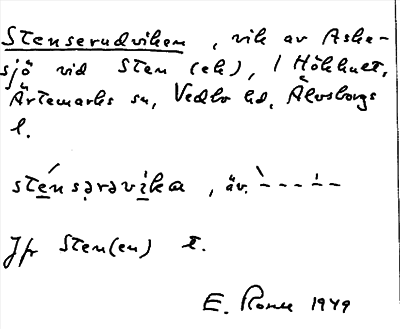 Stenserudviken, vik av Aske-
sjö vid Sten (ek), / Hökhult,
Ärtemarks sn, Vedbo hd, Älvsborgs
l.
sténsərəvika, äv. - - - - -
Jfr Sten(en) t.
E. 1949